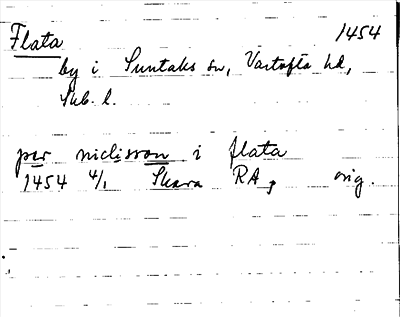 Flata 1454
by i Suntaks sn, Vartofta hd,
Skb. l.
per niclisson i flata
1454 4/1 Skara RA, orig.